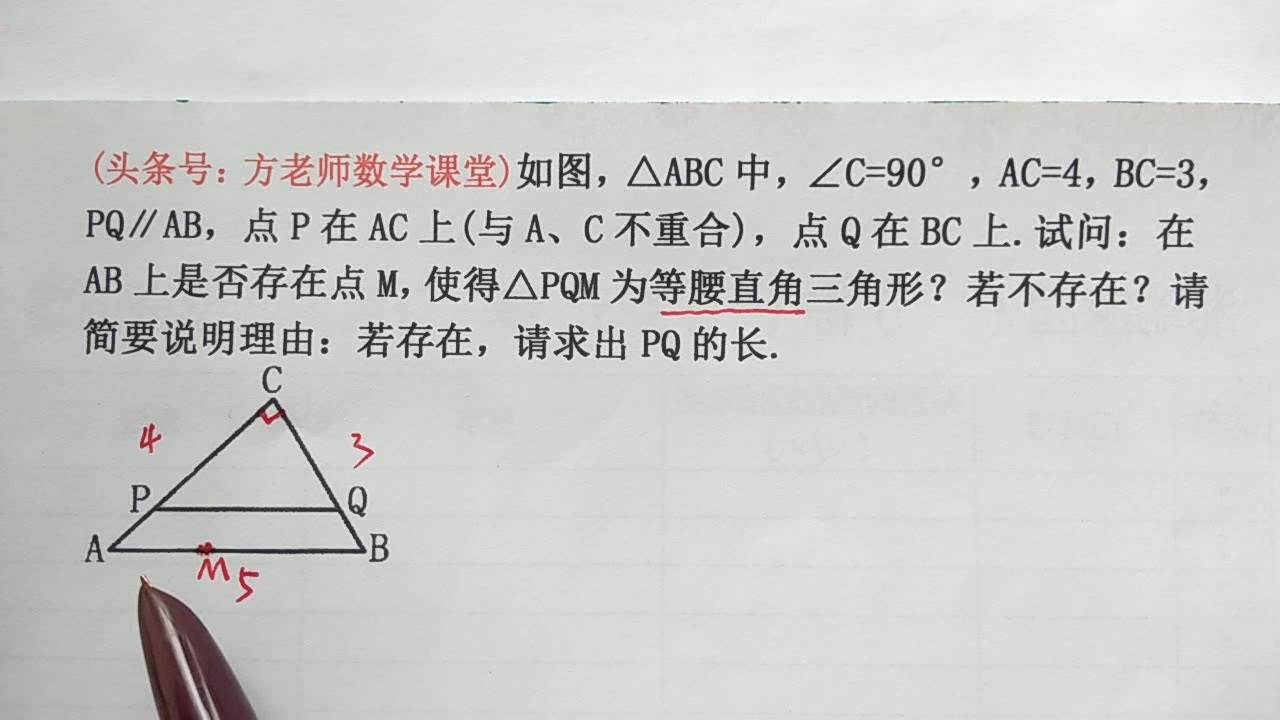 (头条号：方老师数学课堂)如图，△ABC 中，∠C=90°，AC=4，BC=3，
PQ∥AB，点 P 在 AC 上(与 A、C 不重合)，点 Q 在 BC 上.试问：在
AB 上是否存在点 M，使得△PQM 为等腰直角三角形？若不存在？请
简要说明理由：若存在，请求出 PQ 的长.
C
4 3
P Q
A B
M 5